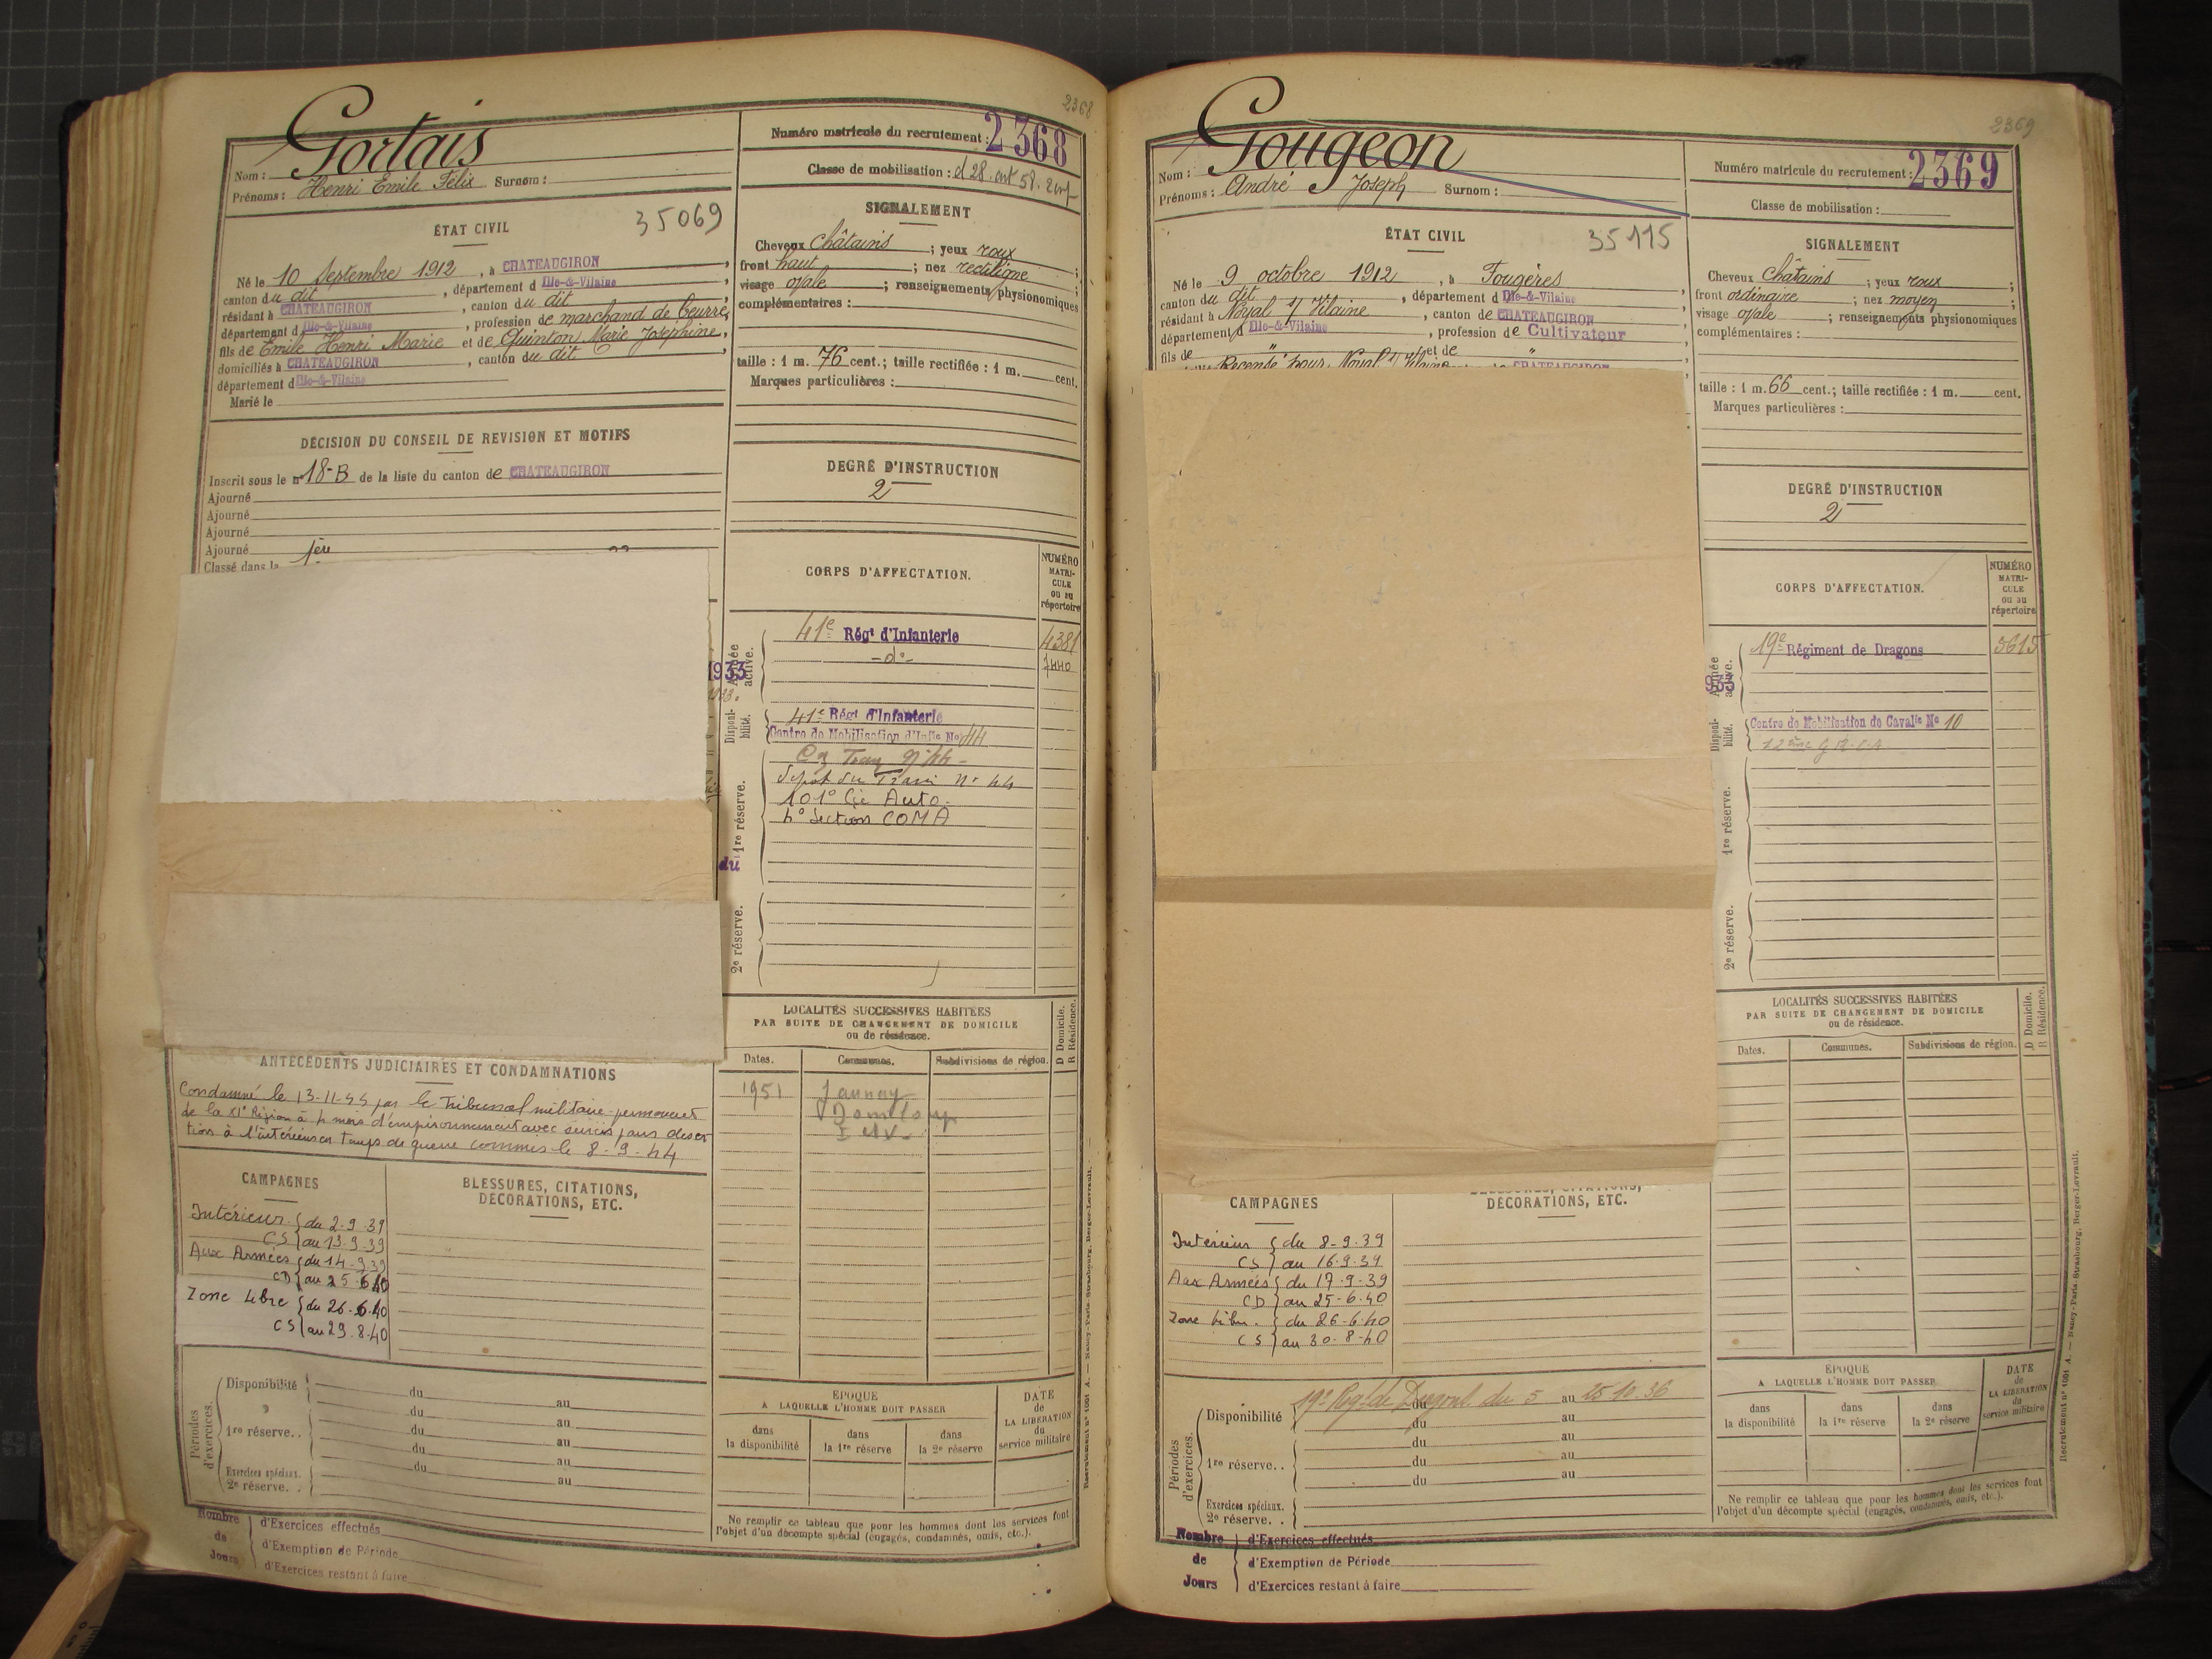 2368
Gortais
Nom :
Prénoms : Henri Emile Félix Surnom :
Numéro matricule du recrutement : 2368
Classe de mobilisation :
ÉTAT CIVIL
35069
Né le 10 Septembre 1912, à CHATEAUGIRON,
canton du dit, département d Ille-&-Vilaine
résidant à CHATEAUGIRON, canton du dit
département d Ille-&-Vilaine, profession de marchand de beurre,
fils de Emile Henri Marie et de Quinton Marie Joséphine,
domiciliés à CHATEAUGIRON, canton du dit,
département d Ille-&-Vilaine
Marié le
SIGNALEMENT
Cheveux châtains ; yeux roux ;
front haut ; nez rectiligne ;
visage ovale ; renseignements physionomiques
complémentaires :
taille : 1 m. 76 cent. ; taille rectifiée : 1 m. cent.
Marques particulières :
DÉCISION DU CONSEIL DE REVISION ET MOTIFS
Inscrit sous le n° 18-B de la liste du canton de CHATEAUGIRON
Ajourné
Ajourné
Ajourné
Ajourné
Classé dans la 1ère
DEGRÉ D'INSTRUCTION
2
CORPS D'AFFECTATION.
NUMÉRO MATRI-CULE ou au répertoire
Armée active.
41e Régt d'Infanterie 4381
-do- 7440
1933
Disponi-bilité.
41e Régt d'Infanterie
Centre de Mobilisation d'Inf1e No 414
Dépôt du Train no 44
101e Cie Auto.
4e Section COMA
1re réserve.
du
2e réserve.
LOCALITÉS SUCCESSIVES HABITÉES
PAR SUITE DE CHANGEMENT DE DOMICILE
ou de résidence.
D Domicile.
R Résidence.
Dates. Communes. Subdivisions de région.
1951
ANTÉCÉDENTS JUDICIAIRES ET CONDAMNATIONS
Condamné le 13-11-44 par le Tribunal militaire permanent
de la XIe Région à 4 mois d'emprisonnement avec sursis pour déser
tion à l'intérieur en temps de guerre commis le 8-9-44
CAMPAGNES
Intérieur { du 2.9.39
CS } au 13.9.39
Aux Armées { du 14-9.39
CD } au 25.6.40
Zone Libre { du 26.6.40
CS } au 29.8.40
BLESSURES, CITATIONS,
DÉCORATIONS, ETC.
Périodes d'exercices.
Disponibilité du au
du au
1re réserve. . du au
du au
Exercices spéciaux. du au
2e réserve. .
Nombre de Jours
d'Exercices effectués
d'Exemption de Période
d'Exercices restant à faire
ÉPOQUE
A LAQUELLE L'HOMME DOIT PASSER
dans la disponibilité
dans la 1re réserve
dans la 2e réserve
DATE de LA LIBÉRATION du service militaire
Ne remplir ce tableau que pour les hommes dont les services font
l'objet d'un décompte spécial (engagés, condamnés, omis, etc.).
Recrutement n° 1001 A. — Nancy-Paris-Strasbourg, Berger-Levrault.
2369
Gougeon
Nom :
Prénoms : André Joseph Surnom :
Numéro matricule du recrutement : 2369
Classe de mobilisation :
ÉTAT CIVIL
35115
Né le 9 octobre 1912, à Fougères,
canton du dit, département d Ille-&-Vilaine
résidant à Noyal s/ Vilaine, canton de CHATEAUGIRON
département d Ille-&-Vilaine, profession de Cultivateur
fils de " et de "
Recensé pour Noyal s/ Vilaine CHATEAUGIRON
SIGNALEMENT
Cheveux châtains ; yeux roux ;
front ordinaire ; nez moyen ;
visage ovale ; renseignements physionomiques
complémentaires :
taille : 1 m. 66 cent. ; taille rectifiée : 1 m. cent.
Marques particulières :
DEGRÉ D'INSTRUCTION
2
CORPS D'AFFECTATION.
NUMÉRO MATRI-CULE ou au répertoire
Armée active.
19e Régiment de Dragons 3615
933
Disponi-bilité.
Centre de Mobilisation de Cavalie No 10
1re réserve.
2e réserve.
LOCALITÉS SUCCESSIVES HABITÉES
PAR SUITE DE CHANGEMENT DE DOMICILE
ou de résidence.
D Domicile.
R Résidence.
Dates. Communes. Subdivisions de région.
CAMPAGNES
Intérieur { du 8-9.39
CS } au 16.9.39
Aux Armées { du 17.9.39
CD } au 25-6.40
Zone libre. { du 26-6.40
CS } au 30-8-40
BLESSURES, CITATIONS,
DÉCORATIONS, ETC.
Périodes d'exercices.
Disponibilité 19e Rgt de Dragons du 5 au 25.10.36
du au
1re réserve. . du au
du au
du au
Exercices spéciaux.
2e réserve. .
Nombre de Jours
d'Exercices effectués
d'Exemption de Période
d'Exercices restant à faire
ÉPOQUE
A LAQUELLE L'HOMME DOIT PASSER
dans la disponibilité
dans la 1re réserve
dans la 2e réserve
DATE de LA LIBÉRATION du service militaire
Ne remplir ce tableau que pour les hommes dont les services font
l'objet d'un décompte spécial (engagés, condamnés, omis, etc.).
Recrutement n° 1001 A. — Nancy-Paris-Strasbourg, Berger-Levrault.